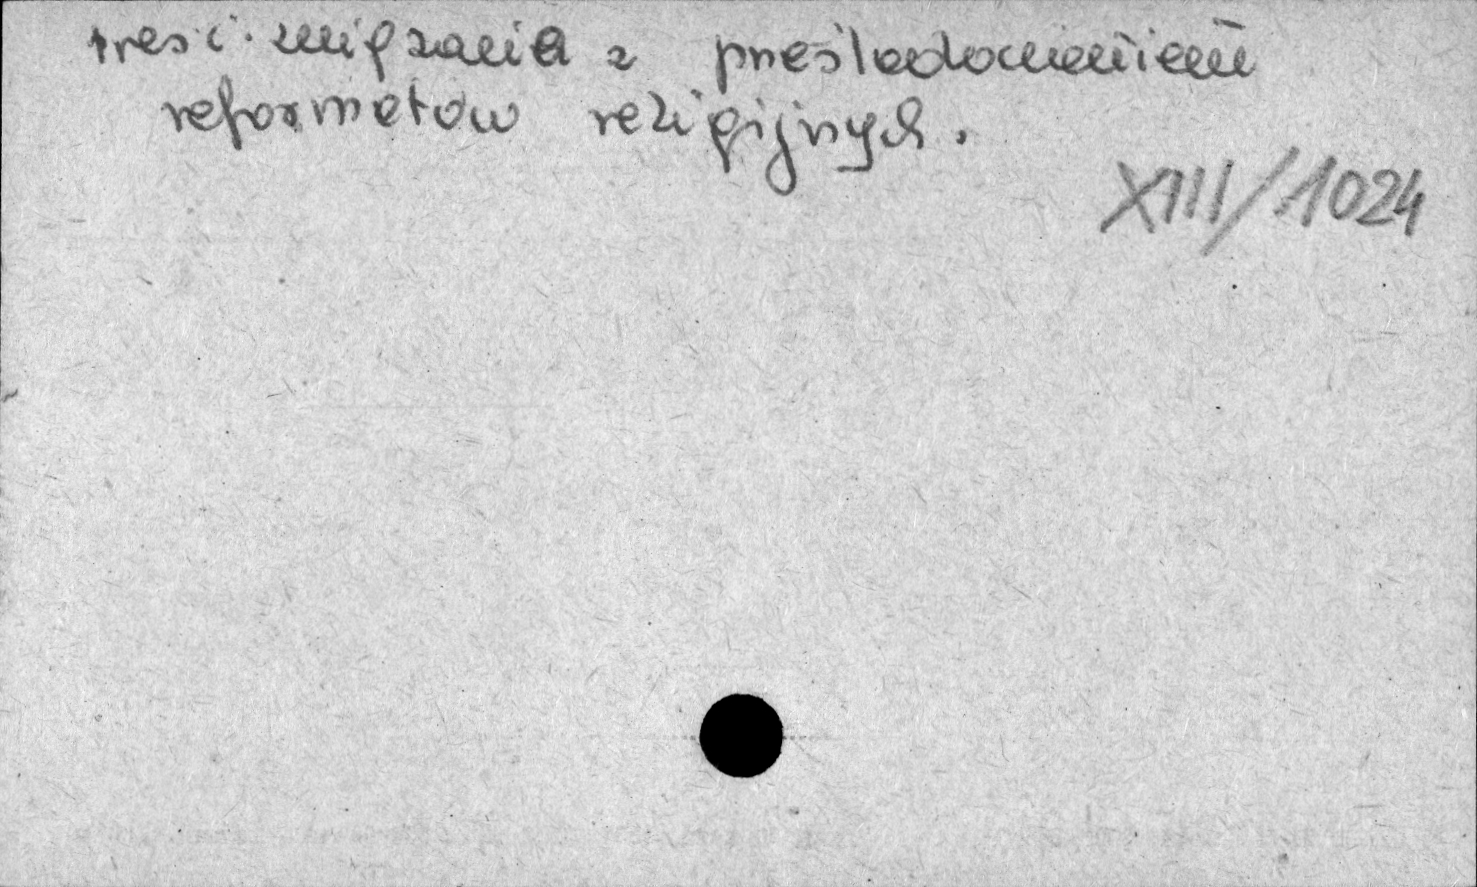 treści związania z prześladowaniem
reformatów religijnych.
XIII/1024